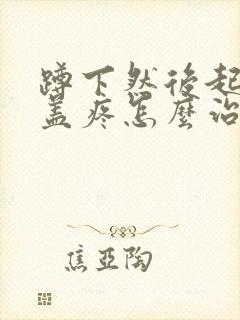 蹲下然後起
盖疼怎麼治
焦亚陶